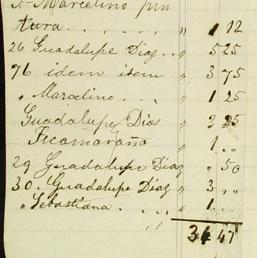 Marcelino pin
tura . . . . " 1 12
26 Guadalupe Dias . . " 5 25
76 idem item " 3 75
" Marcelino . . " 1 25
Guadalupe Dias " 3 25
" 1 . .
29 Guadalupe Dias " " 50
30. Guadalupe Dias " 3 " "
" Sebastiana . . . " 1
34 47